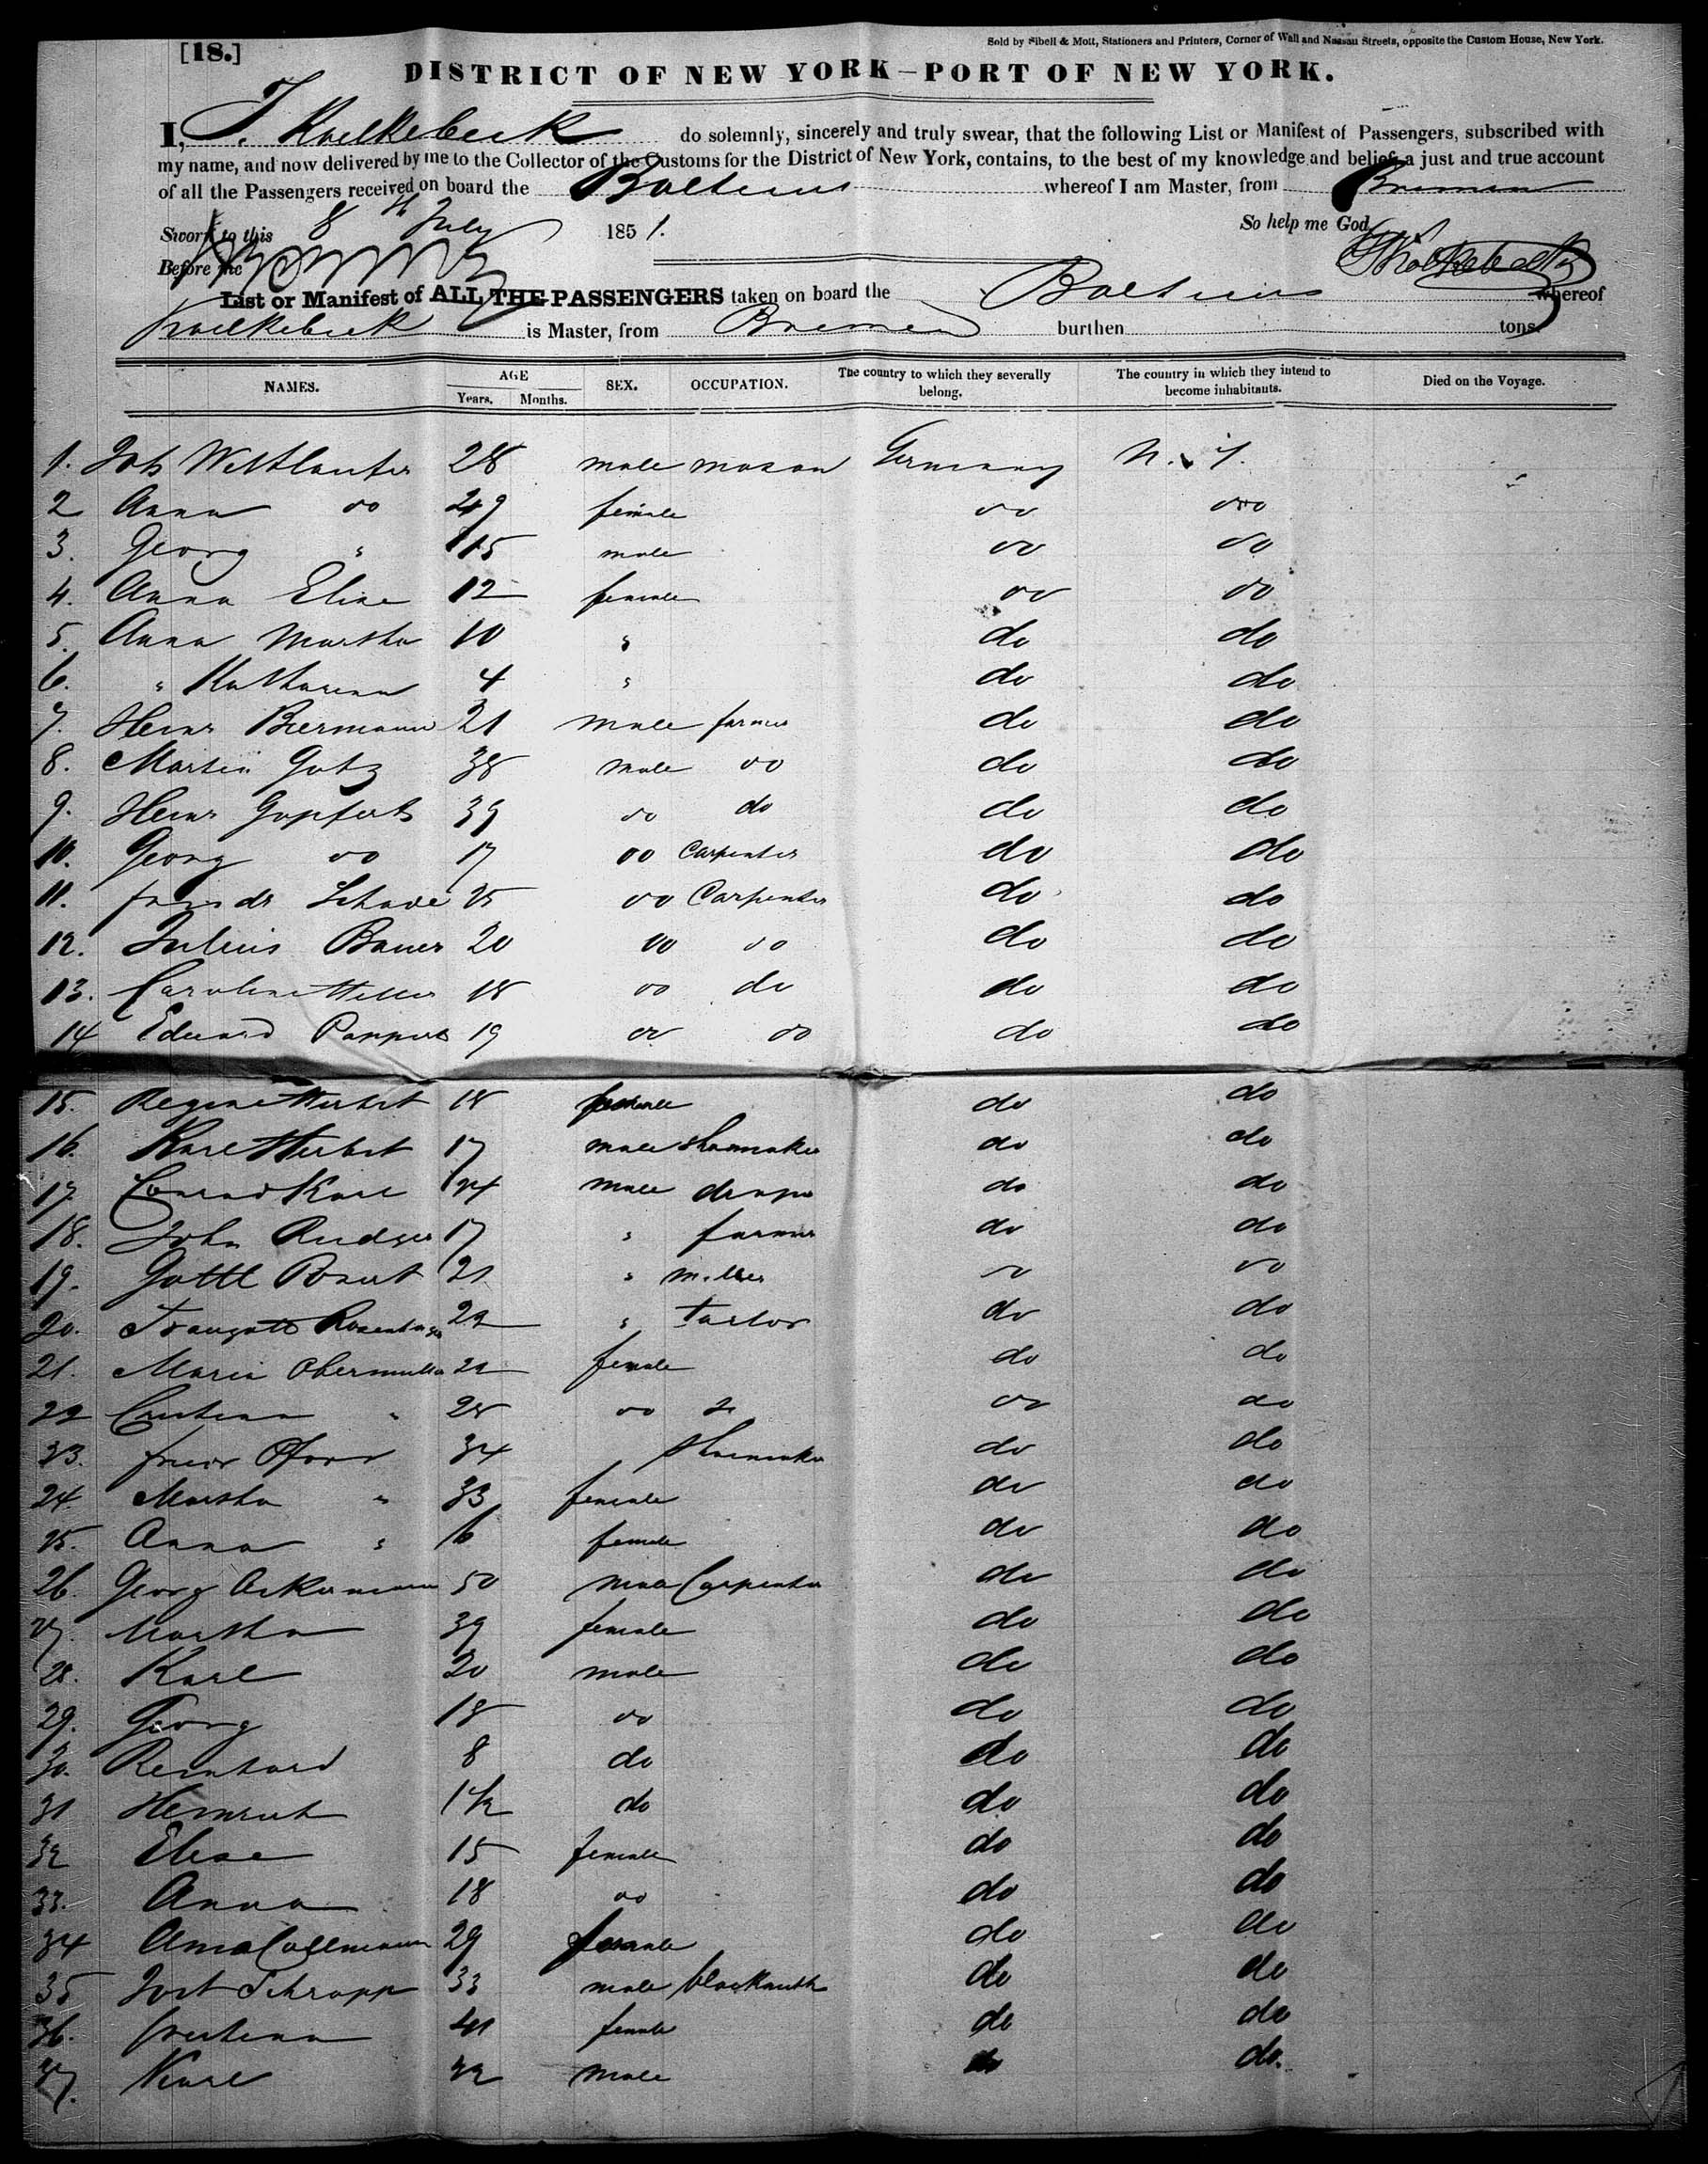 [18.]
Sold by Sibell & Mott, Stationers and Printers, Corner of Wall and Nassau Streets, opposite the Custom House, New York.
DISTRICT OF NEW YORK—PORT OF NEW YORK.
I, J. Koelkebeck do solemnly, sincerely and truly swear, that the following List or Manifest of Passengers, subscribed with
my name, and now delivered by me to the Collector of the Customs for the District of New York, contains, to the best of my knowledge and belief, a just and true account
of all the Passengers received on board the whereof I am Master, from Bremen
Sworn to this 8th July 1851. So help me God
Before me
List or Manifest of ALL THE PASSENGERS taken on board the whereof
Koelkebeck is Master, from Bremen burthen tons.
NAMES. AGE SEX. OCCUPATION. The country to which they severally belong. The country in which they intend to become inhabitants. Died on the Voyage.
Years. Months.
1. Joh 28 male mason Germany N. Y.
2 Anna do 29 female do do
3. Georg " 15 male do do
4. Anna Elise 12 female do do
5. Anna Martha 10 " do do
6. " Katharina 4 " do do
7. Heinr Biermann 21 male farmer do do
8. Martin Gotz 38 male do do do
9. Heinr 39 do do do do
10. Georg do 17 do Carpenter do do
11. Schade 25 do Carpenter do do
12. Julius Bauer 20 do do do do
13. Caroline 18 do do do do
14 Eduard 19 do do do do
15. Regine Herbst 18 female do do
16. Karl Herbst 17 male Shoemaker do do
17. Conrad Karl 24 male do do
18. John 17 " farmer do do
19. Gottl 21 " miller do do
20. Traugott 22 " tailor do do
21. Maria Obermuller 22 female do do
22 " 28 do do do
23. 34 Shoemaker do do
24. Martha " 33 female do do
25. Anna " 6 female do do
26. Georg Ackermann 50 male Carpenter do do
27. Martha 39 female do do
28. Karl 20 male do do
29. Georg 18 do do do
30. Reinhard 8 do do do
31 Heinrich 1½ do do do
32 Elise 15 female do do
33. Anna 18 do do do
34 29 female do do
35 Jost Schrapp 33 male blacksmith do do
36. female do do
37. Karl male do do.